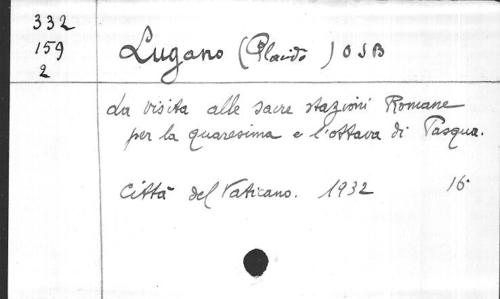 332
159
2
Lugano (Placido) OSB
La visita alle sacre stazioni Romane
per la quaresima e l'ottava di Pasqua.
Città del Vaticano. 1932 16°